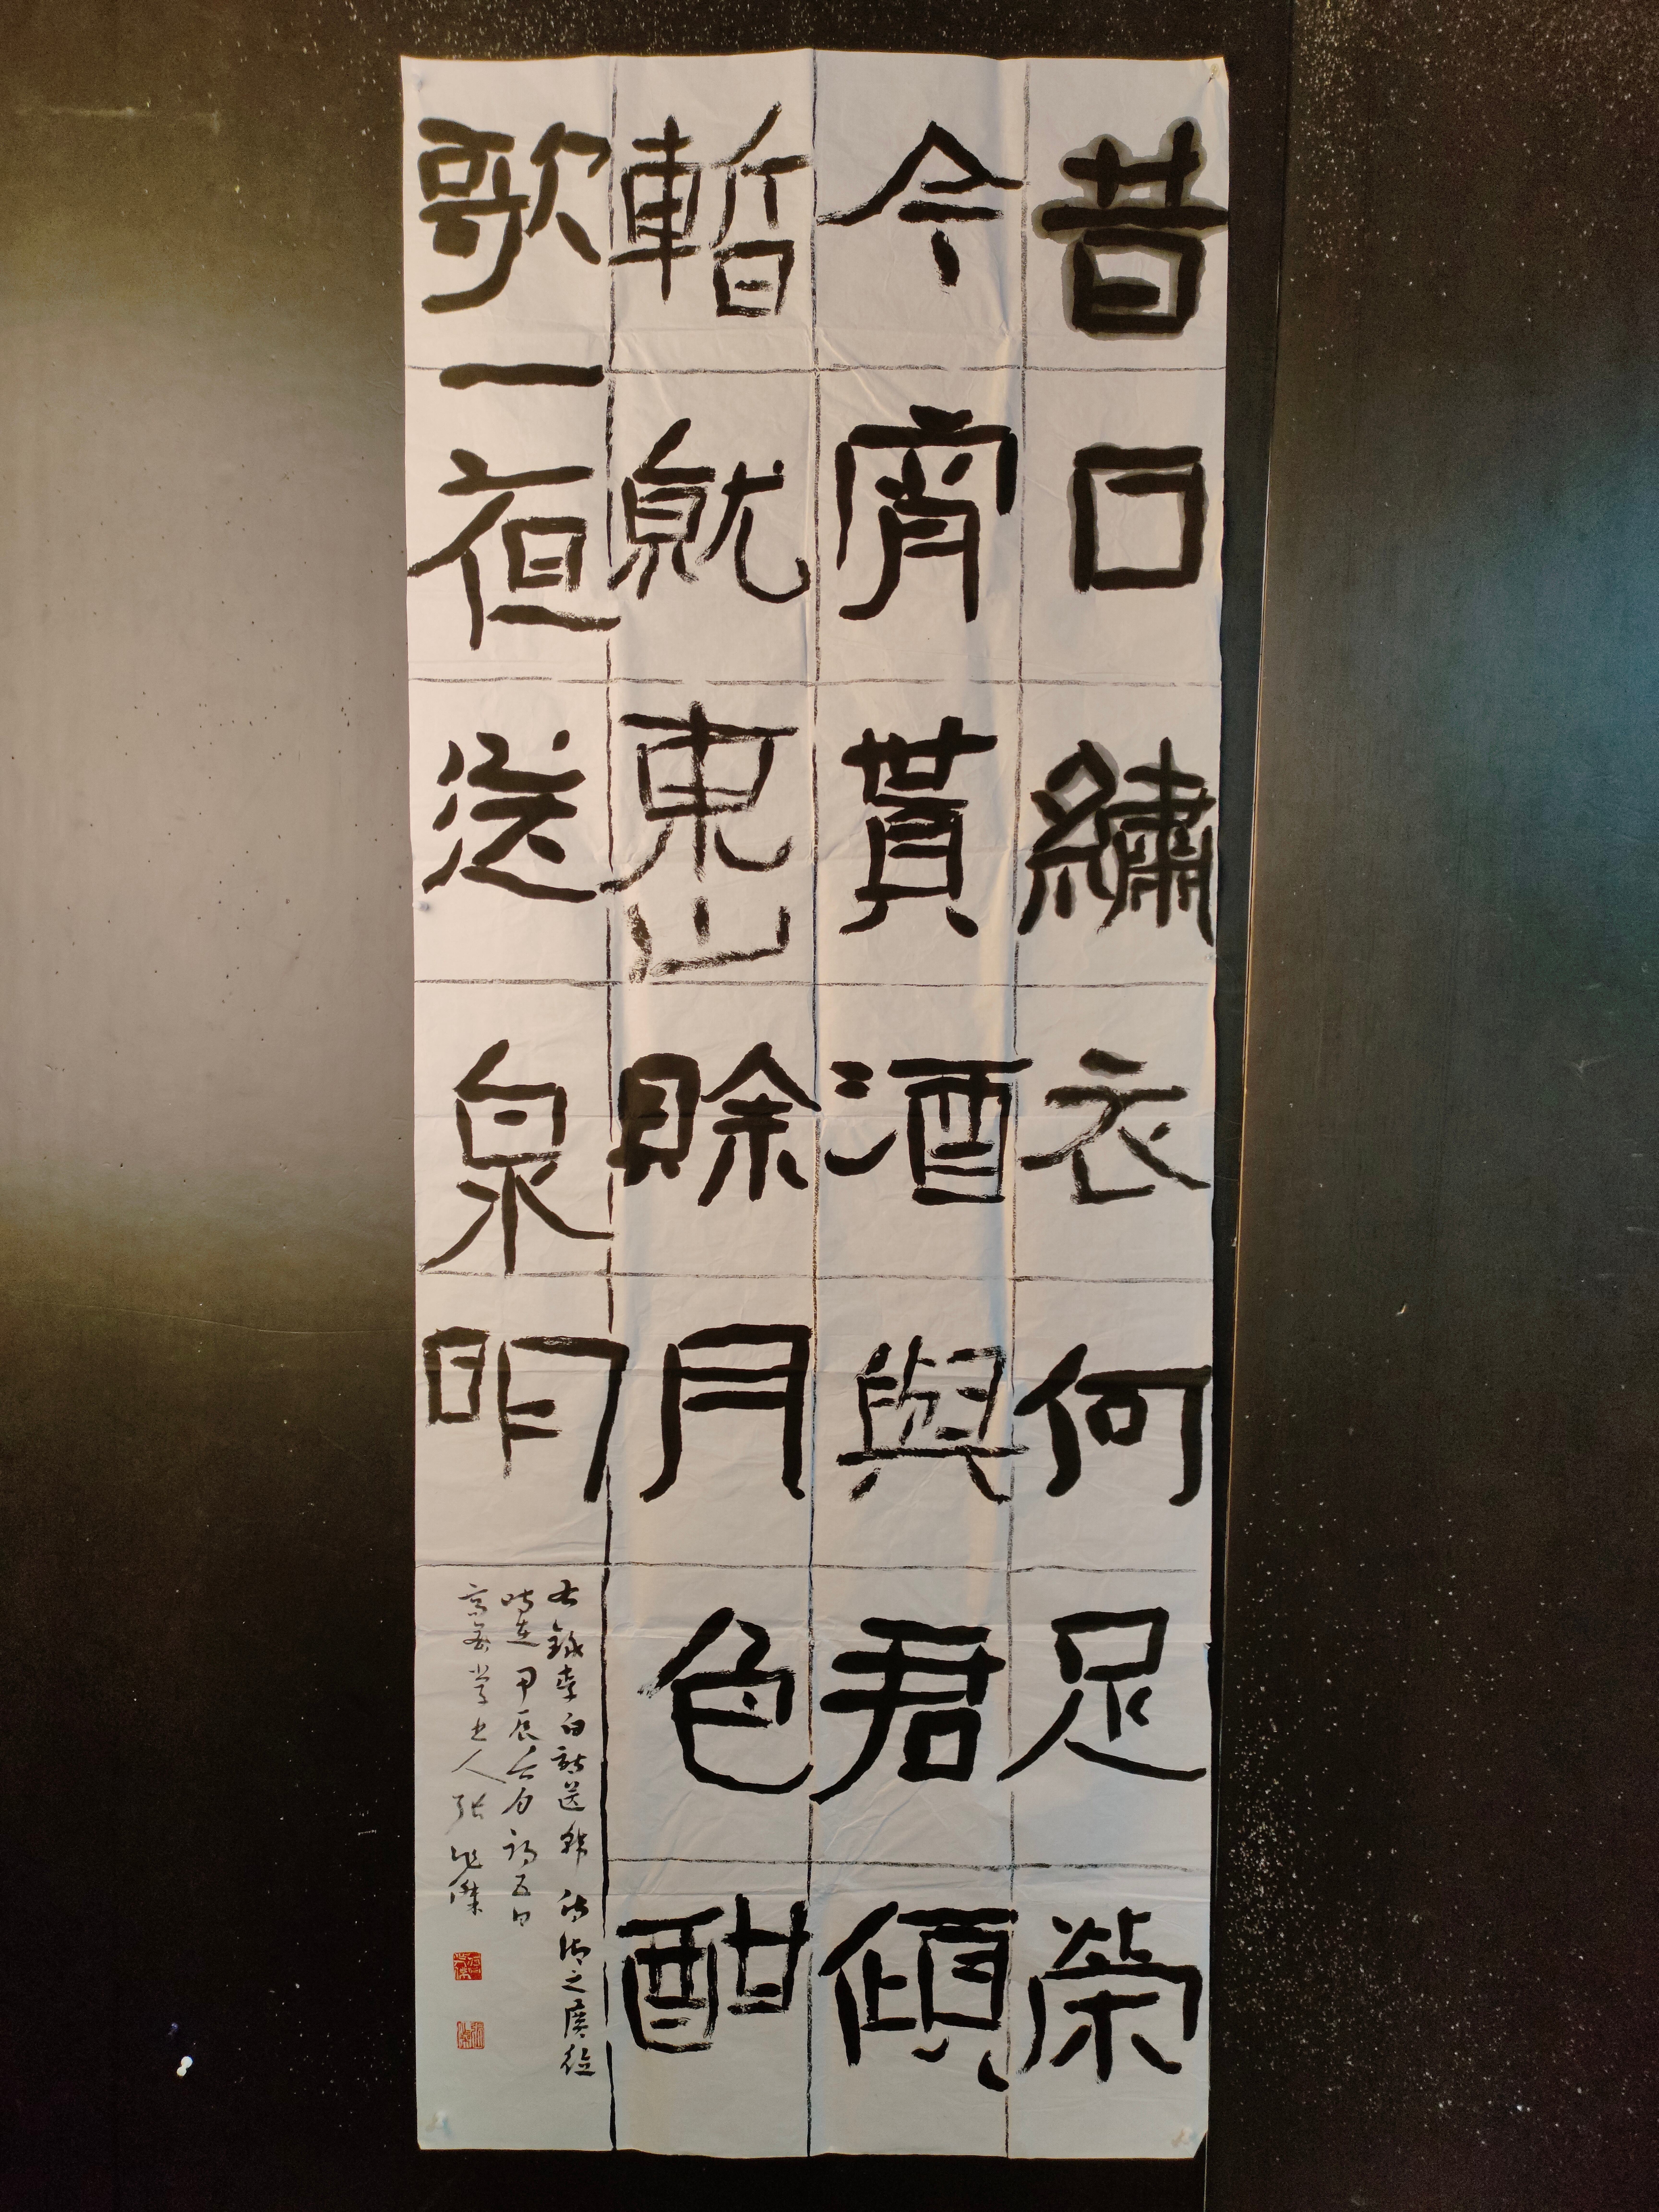 昔日繡衣何足榮
今宵貰酒與君傾
暫就東山賒月色酣
歌一夜送泉明
右錄李白詩送韓侍御之廣德
時在甲辰月初五日
高密学书人張傑